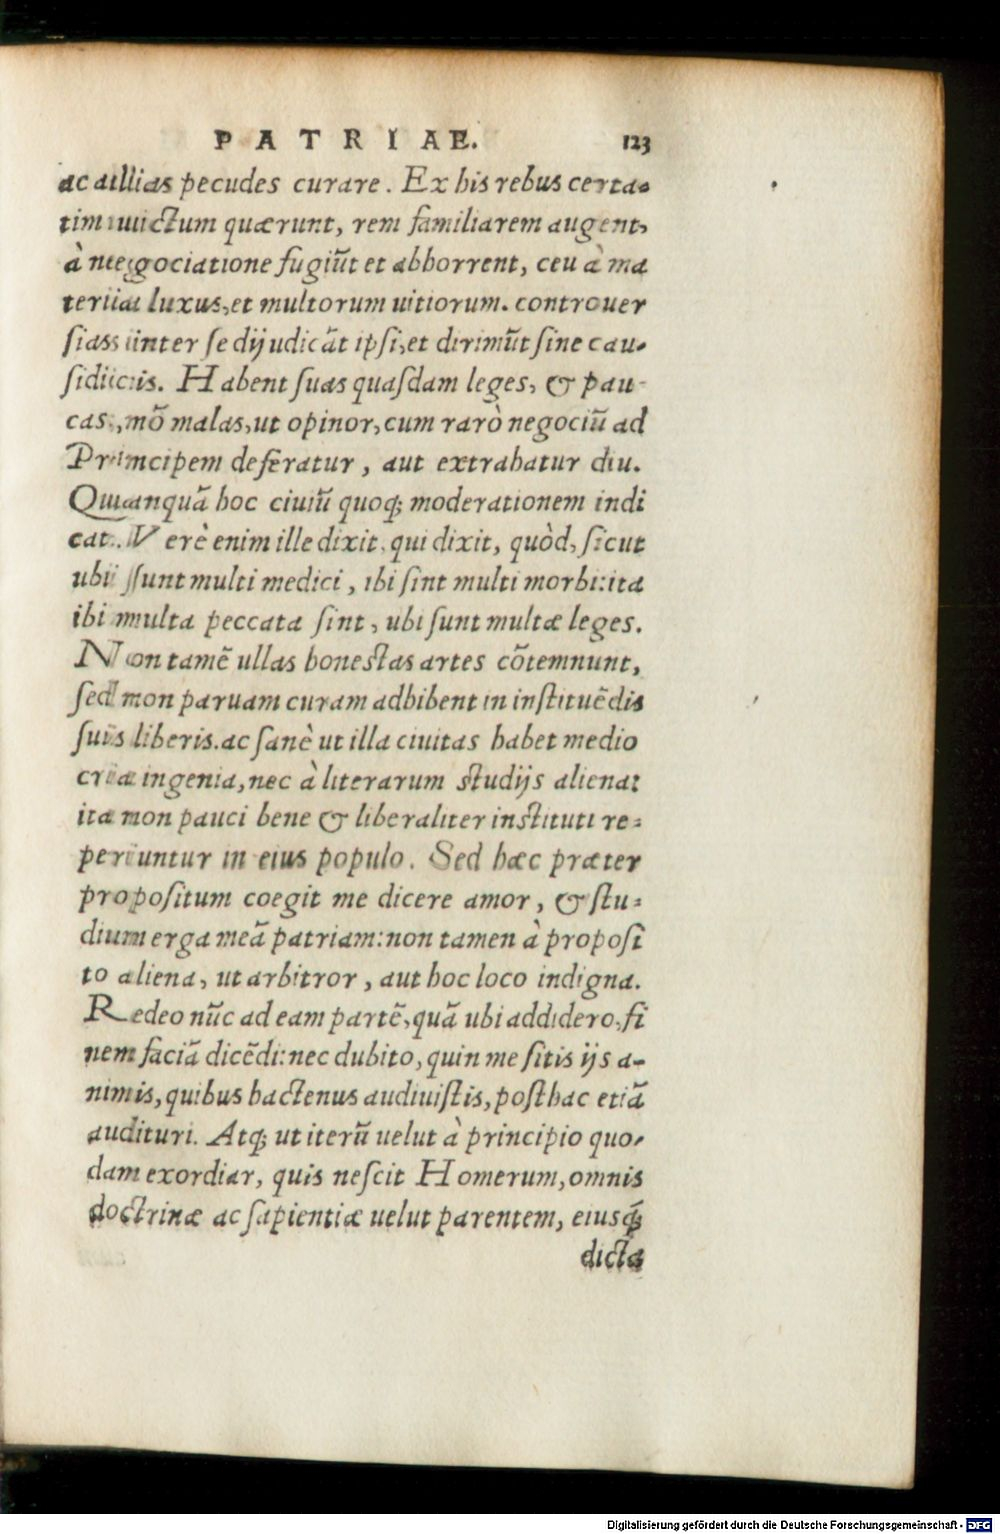 PATRIAE. 123
ac allias pecudes curare. Ex his rebus certa-
tim uictum quærunt, rem familiarem augent,
à negociatione fugiũt et abhorrent, ceu à ma
teriia luxus, et multorum uitiorum. controuer
sias inter se dijudicãt ipsi, et dirimũt sine cau-
sidicis. Habent suas quasdam leges, & pau-
cas, nõ malas, ut opinor, cum rarò negociũ ad
Principem deferatur, aut extrahatur diu.
Quanquã hoc ciuiũ quoq; moderationem indi
cat. Verè enim ille dixit, qui dixit, quòd, sicut
ubi sunt multi medici, ibi sint multi morbi: ita
ibi multa peccata sint, ubi sunt multæ leges.
Non tamẽ ullas honestas artes cõtemnunt,
sed non paruam curam adhibent in instituẽdis
suis liberis. ac sanè ut illa ciuitas habet medio
cria ingenia, nec à literarum studijs aliena:
ita non pauci bene & liberaliter instituti re-
periuntur in eius populo. Sed hæc præter
propositum coegit me dicere amor, & stu-
dium erga meã patriam: non tamen à proposi
to aliena, ut arbitror, aut hoc loco indigna.
Redeo nũc ad eam partẽ, quã ubi addidero, fi
nem faciã dicẽdi: nec dubito, quin me sitis ijs a-
nimis, quibus hactenus audiuistis, posthac etiã
audituri. Atq; ut iterũ uelut à principio quo-
dam exordiar, quis nescit Homerum, omnis
doctrinæ ac sapientiæ uelut parentem, eiusq́;
dicta
Digitalisierung gefördert durch die Deutsche Forschungsgemeinschaft - DFG